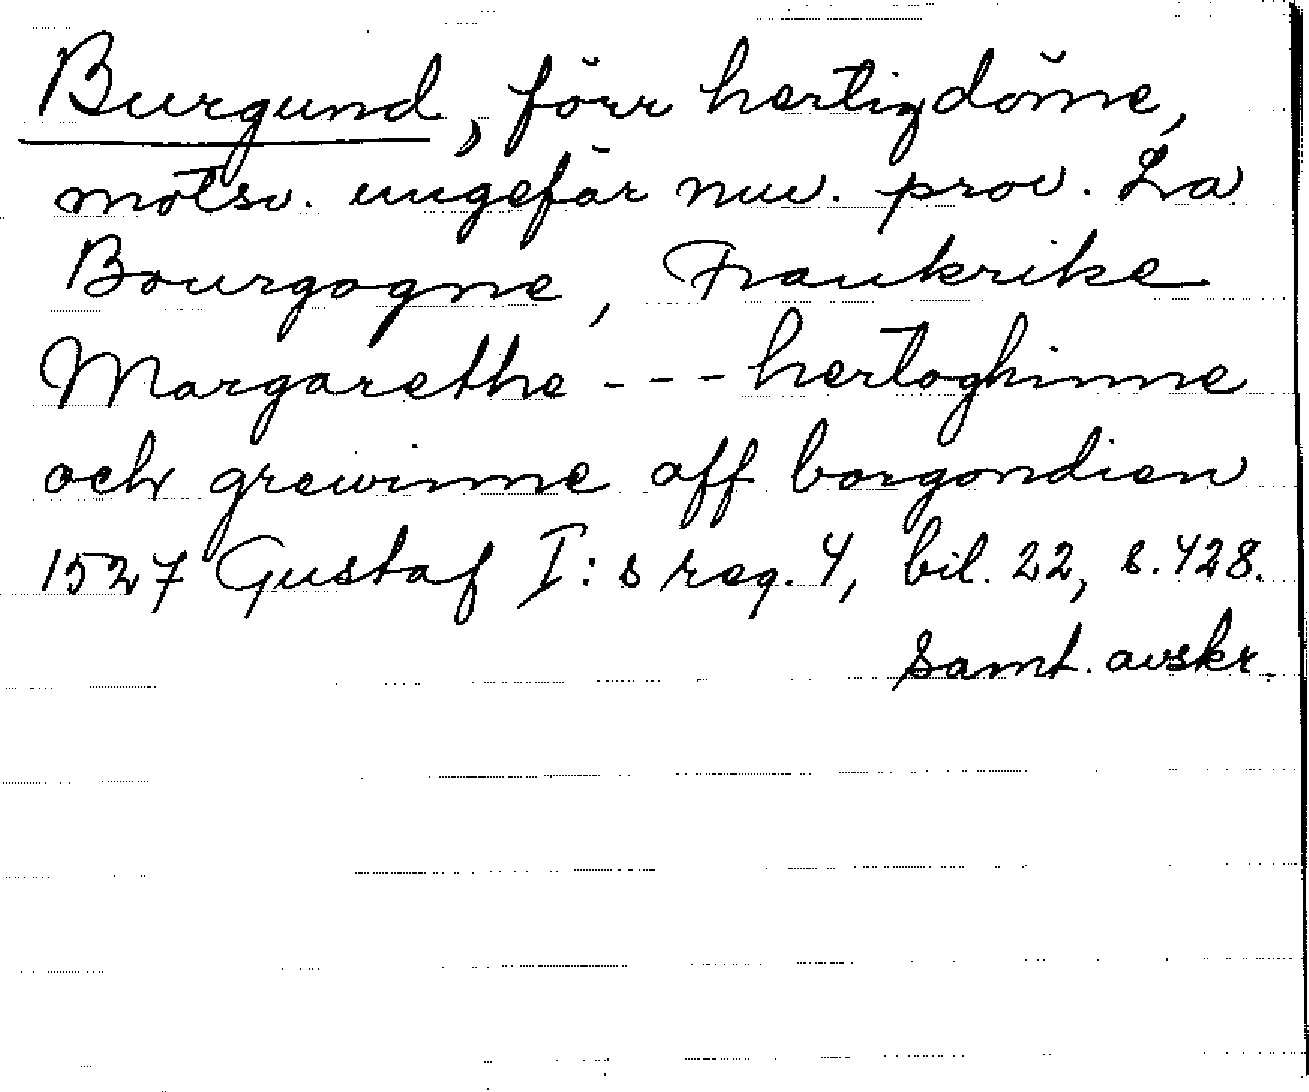 Burgund, förr hertigdöme,
motsv. ungefär nuv. prov. La
Bourgogne, Frankrike
Margarethe --- hertoghinne
och grewinne aff borgondien
1527 Gustaf I:s reg. 4, bil. 22, s. 428.
samt. avskr.